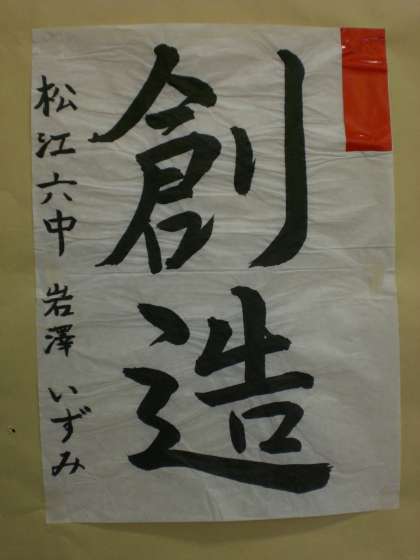 創造
松江六中 岩澤 いずみ